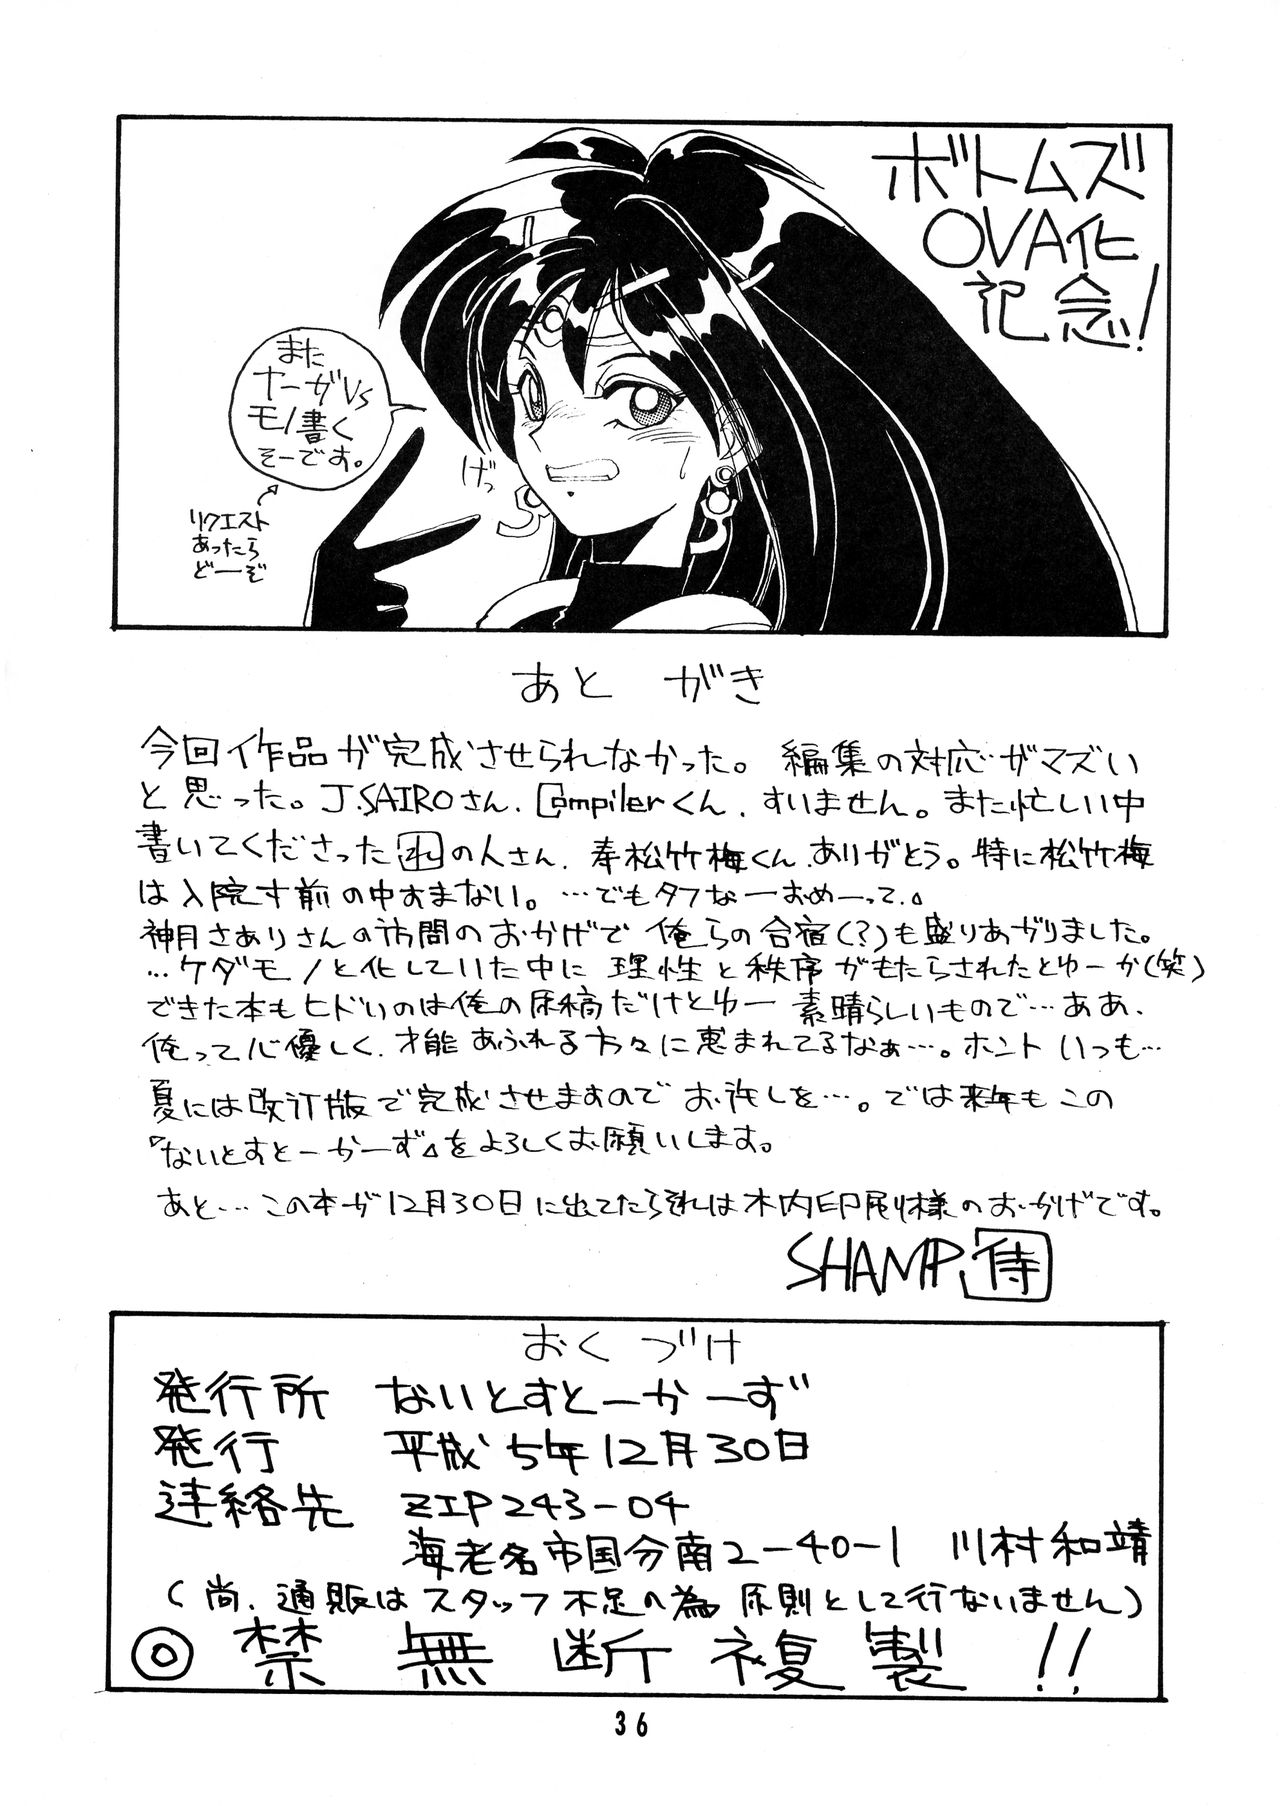 ボトムズ
OVA化
記念!
また
ナーガVS
モノ書く
そーです。
リクエスト
あったら
どーぞ
げっ
あとがき
今回作品が完成させられなかった。編集の対応がマズい
と思った。J.SAIROさん、Compilerくん、すいません。また忙しい中
書いてくださった の人さん、奉松竹梅くん、ありがとう。特に松竹梅
は入院寸前の中すまない。…でもタフなーおめーって。
神月さありさんの訪問のおかげで俺らの合宿(?)も盛りあがりました。
…ケダモノと化していた中に理性と秩序がもたらされたとゆーか(笑)
できた本もヒドいのは俺の原稿だけとゆー素晴らしいもので…ああ、
俺って心優しく、才能あふれる方々に恵まれてるなぁ…。ホントいつも…
夏には改訂版で完成させますのでお許しを…。では来年もこの
『ないとすとーかーず』をよろしくお願いします。
あと…この本が12月30日に出てたらそれは木内印刷様のおかげです。
SHAMP侍
おくづけ
発行所 ないとすとーかーず
発行 平成5年12月30日
連絡先 ZIP243-04
海老名市国分南2-40-1 川村和靖
(尚、通販はスタッフ不足の為原則として行ないません)
◎禁無断複製!!
36